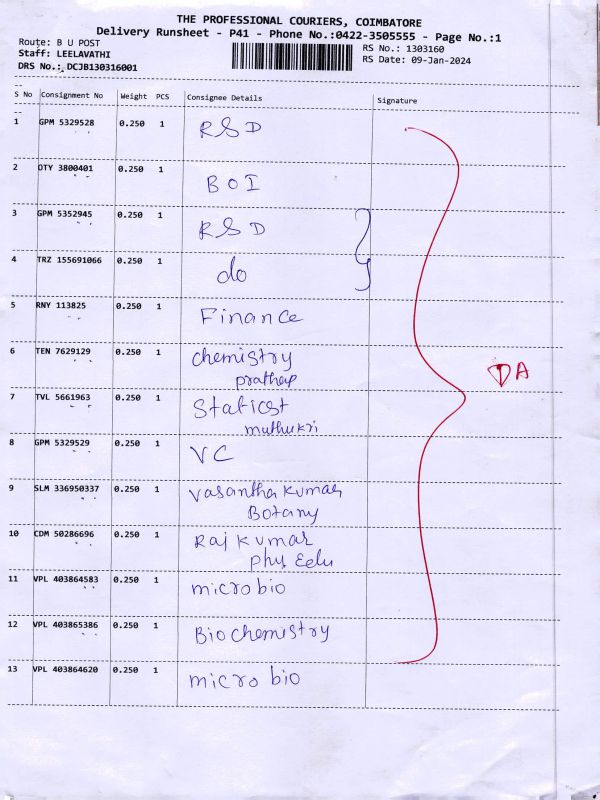 THE PROFESSIONAL COURIERS, COIMBATORE
Delivery Runsheet - P41 - Phone No.:0422-3505555 - Page No.:1
Route: B U POST
RS No.: 1303160
Staff: LEELAVATHI
RS Date: 09-Jan-2024
DRS No.: DCJB130316001
S No Consignment No Weight PCS Consignee Details Signature
1 GPM 5329528 0.250 1 RSD
2 OTY 3800401 0.250 1 BOI
3 GPM 5352945 0.250 1 RSD
4 TRZ 155691066 0.250 1 do
5 RNY 113825 0.250 1 Finance
6 TEN 7629129 0.250 1 chemistry
prathap
7 TVL 5661963 0.250 1 Staticst
muthukri
8 GPM 5329529 0.250 1 VC
9 SLM 336950337 0.250 1 Vasantha kumar
Botany
10 CDM 50286696 0.250 1 Raj kumar
phy Edu
11 VPL 403864583 0.250 1 micro bio
12 VPL 403865386 0.250 1 Bio chemistry
13 VPL 403864620 0.250 1 micro bio